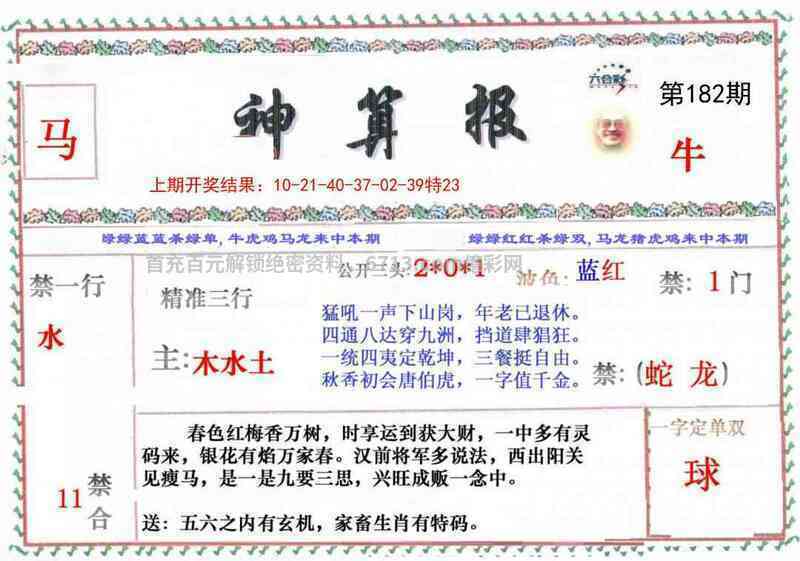 神算报
六合彩
第182期
马
牛
上期开奖结果：10-21-40-37-02-39特23
绿绿蓝蓝杀绿单,牛虎鸡马龙来中本期
绿绿红红杀绿双,马龙猪虎鸡来中本期
首充百元解锁绝密资料
禁一行
水
精准三行
主:木水土
公开三头:2*0*1
波色:蓝红
禁:1门
猛吼一声下山岗，年老已退休。
四通八达穿九洲，挡道肆猖狂。
一统四夷定乾坤，三餐挺自由。
秋香初会唐伯虎，一字值千金。
禁:(蛇 龙)
11禁合
春色红梅香万树，时享运到获大财，一中多有灵
码来，银花有焰万家春。汉前将军多说法，西出阳关
见瘦马，是一是九要三思，兴旺成贩一念中。
送：五六之内有玄机，家畜生肖有特码。
一字定单双
球